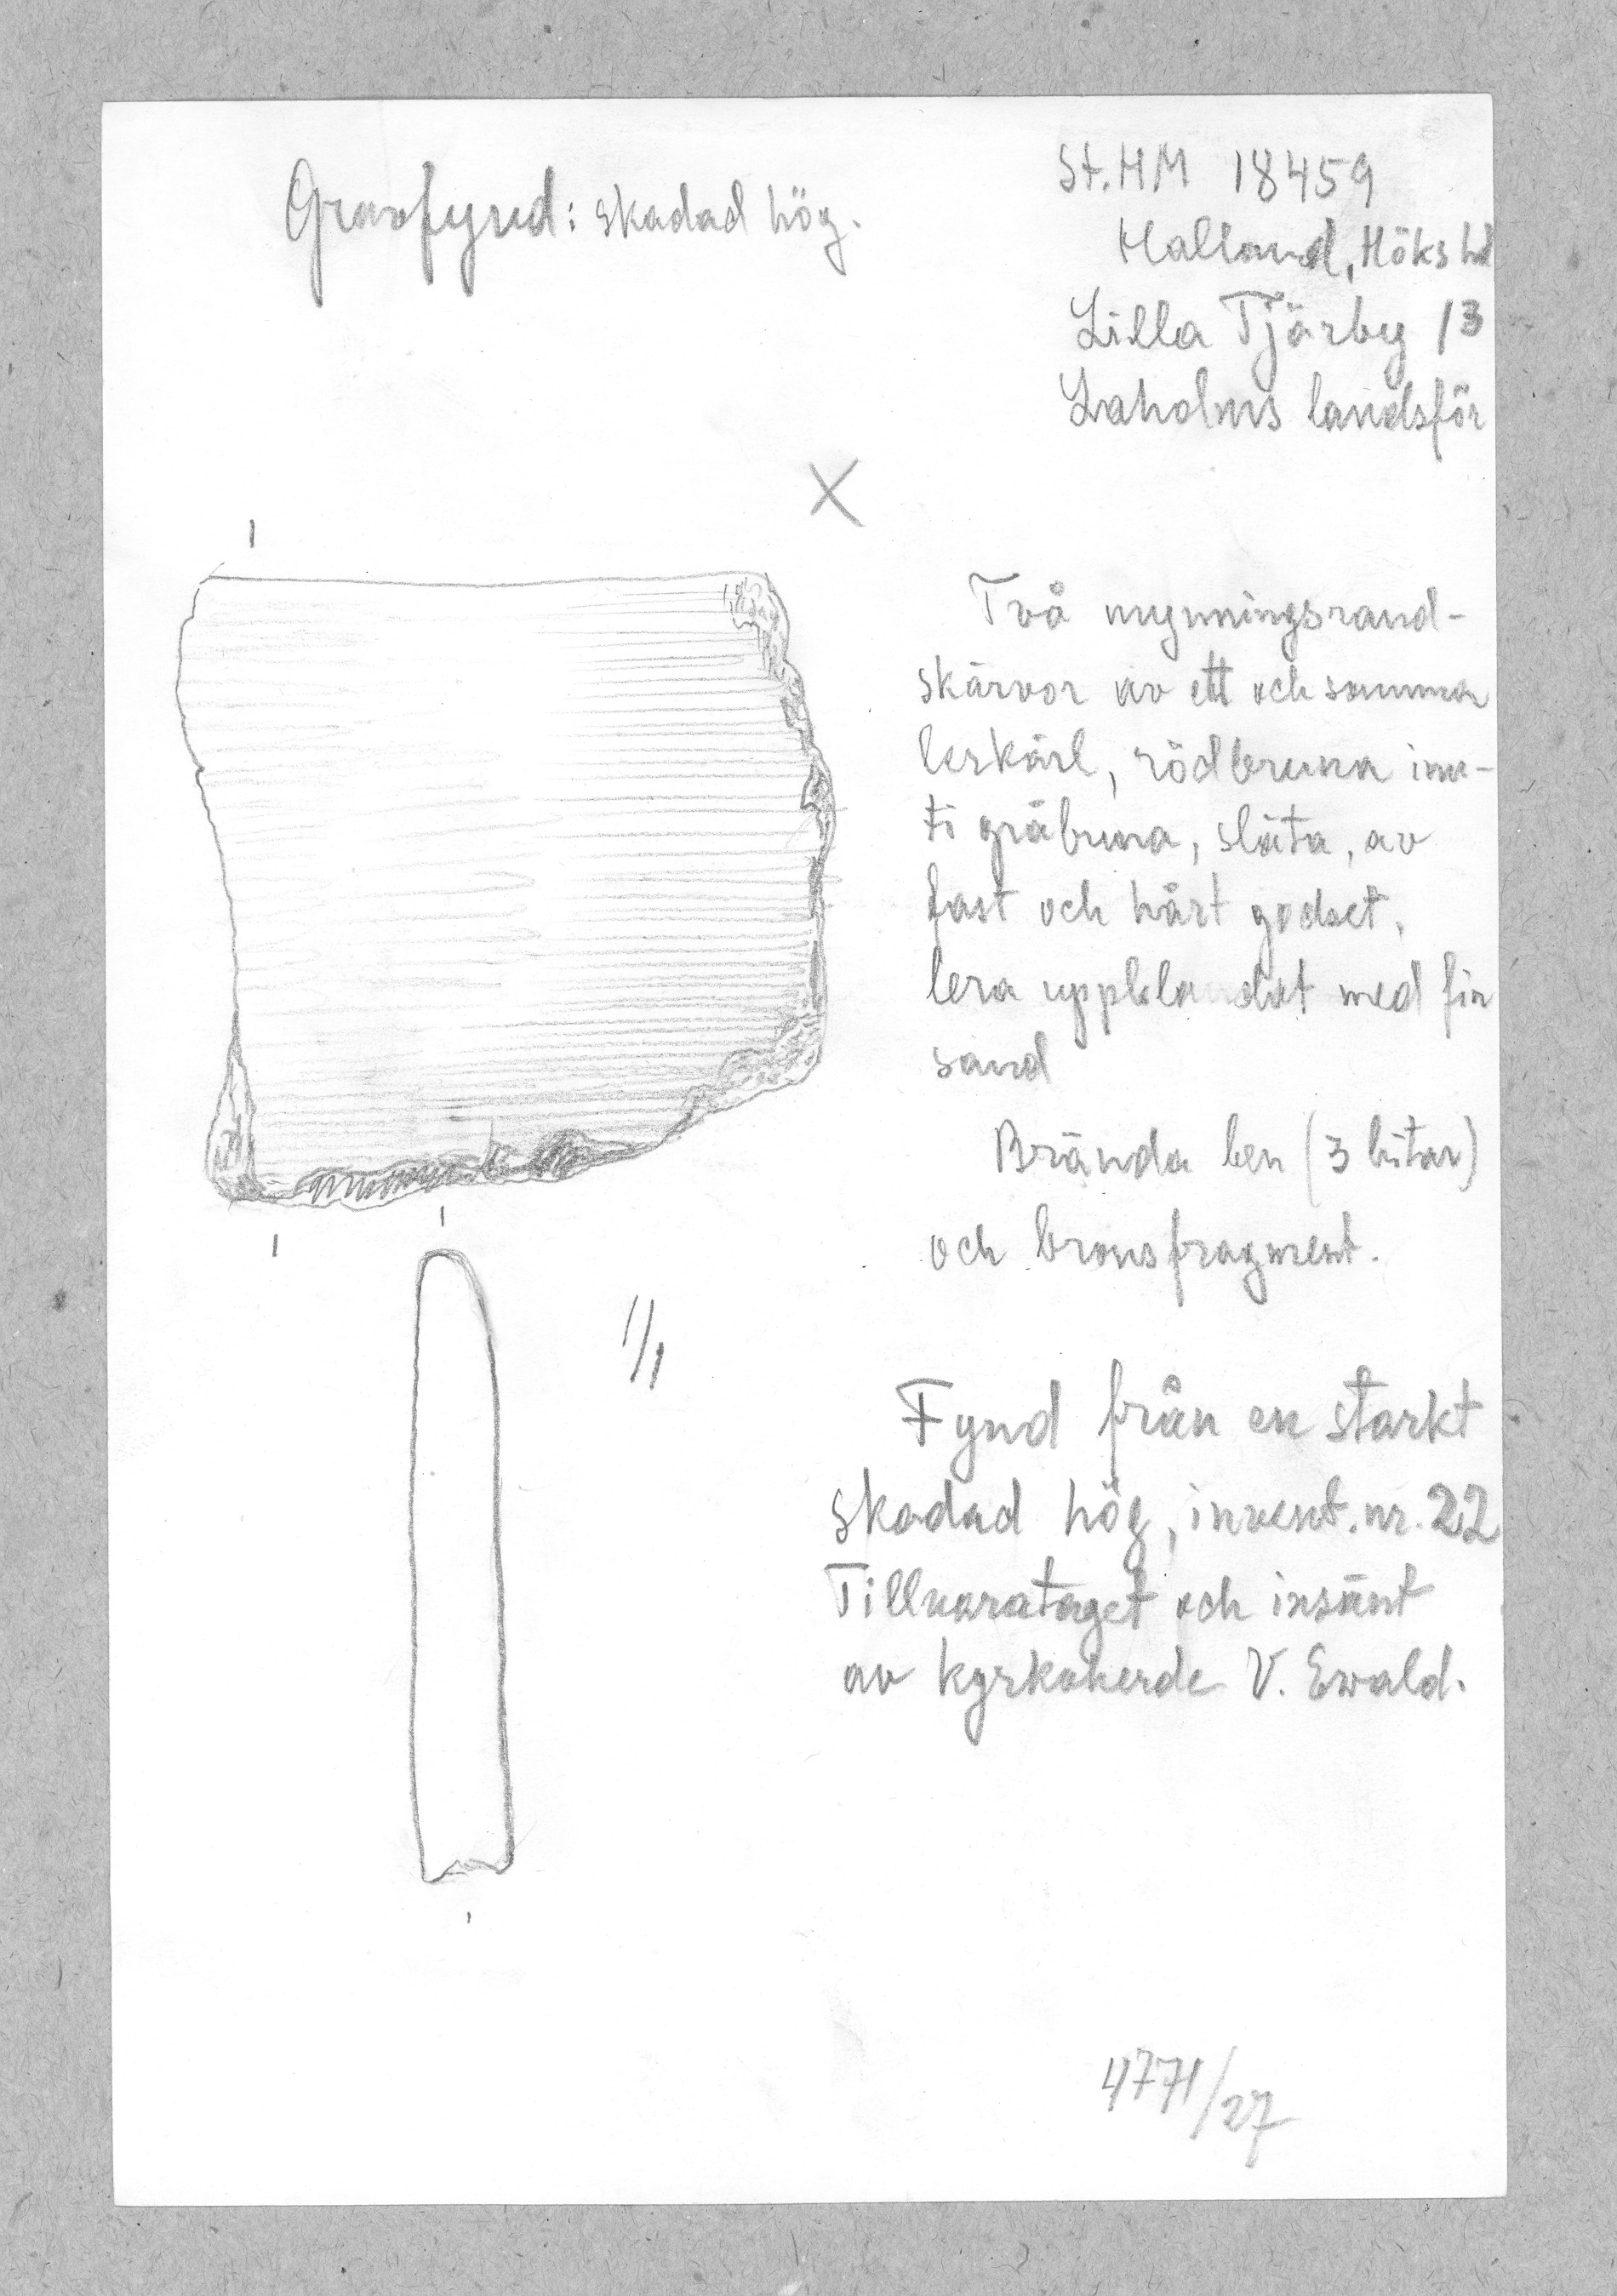 Gravfynd: skadad hög.
St. HM 18459
Halland, Höks hd
Lilla Tjärby 13
Laholms landsför
X
Två mynningsrand-
skärvor av ett och samma
lerkärl, rödbruna inu-
ti gråbruna, släta, av
fast och hårt godset,
lera uppblandat med fin
sand
Brända ben (3 bitar)
och bronsfragment.
1/1
Fynd från en starkt
skadad hög, invent. nr. 22
Tillvarataget och insänt
av kyrkoherde V. Ewald.
4771/27